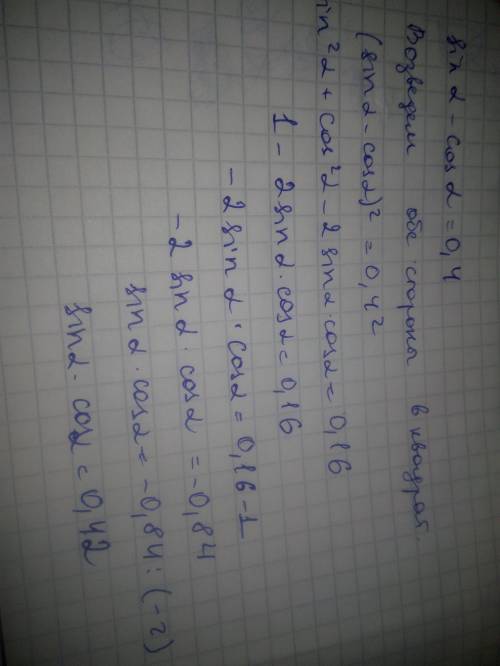 sin α - cos α = 0,4
Возведем обе стороны в квадрат.
(sin α - cos α)² = 0,4²
sin²α + cos²α - 2 sin α · cos α = 0,16
1 - 2 sin α · cos α = 0,16
- 2 sin α · cos α = 0,16 - 1
- 2 sin α · cos α = -0,84
sin α · cos α = -0,84 : (-2)
sin α · cos α = 0,42